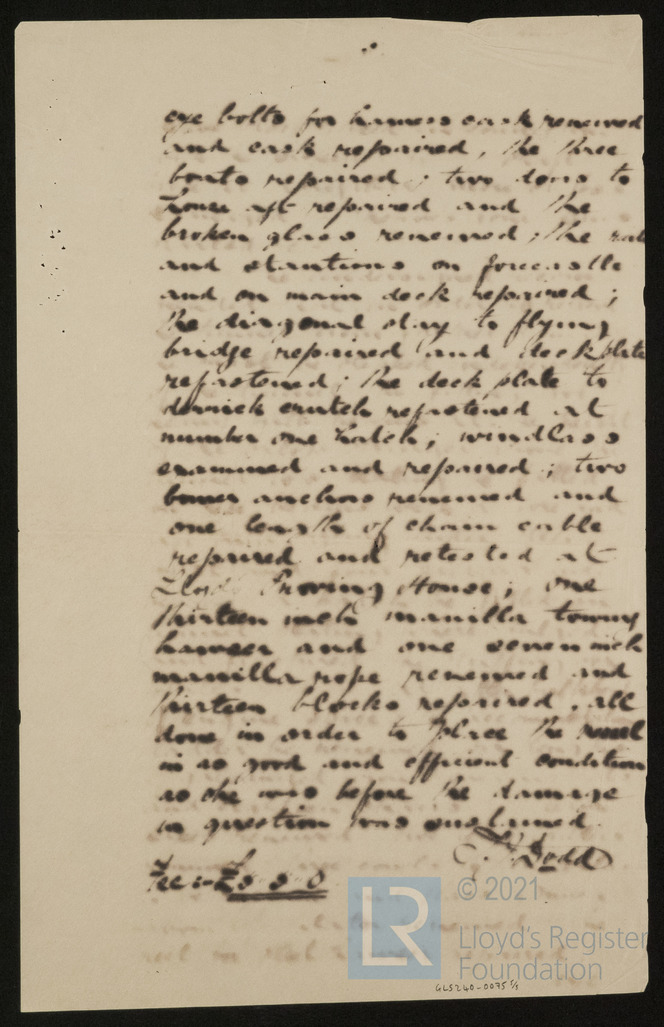 eye bolts for harness cask renewed
and cask repaired, the three
boats repaired; two doors to
house aft repaired and the
broken glass renewed; the rail
and stantions on forecastle
and on main deck repaired;
the diagonal stay to flying
bridge repaired and deck plate
refastened; the deck plate to
derrick crutch refastened at
number one hatch; windlass
examined and repaired; two
bower anchors renewed and
one length of chain cable
repaired and retested at
Lloyds Proving House; one
thirteen inch manilla towing
hawser and one seven inch
manilla rope renewed and
thirteen blocks repaired, all
done in order to place the vessel
in as good and efficient condition
as she was before the damage
in question was sustained.
Dodd
Fee
LR
© 2021
Lloyd's Register
Foundation
GLS240-0075